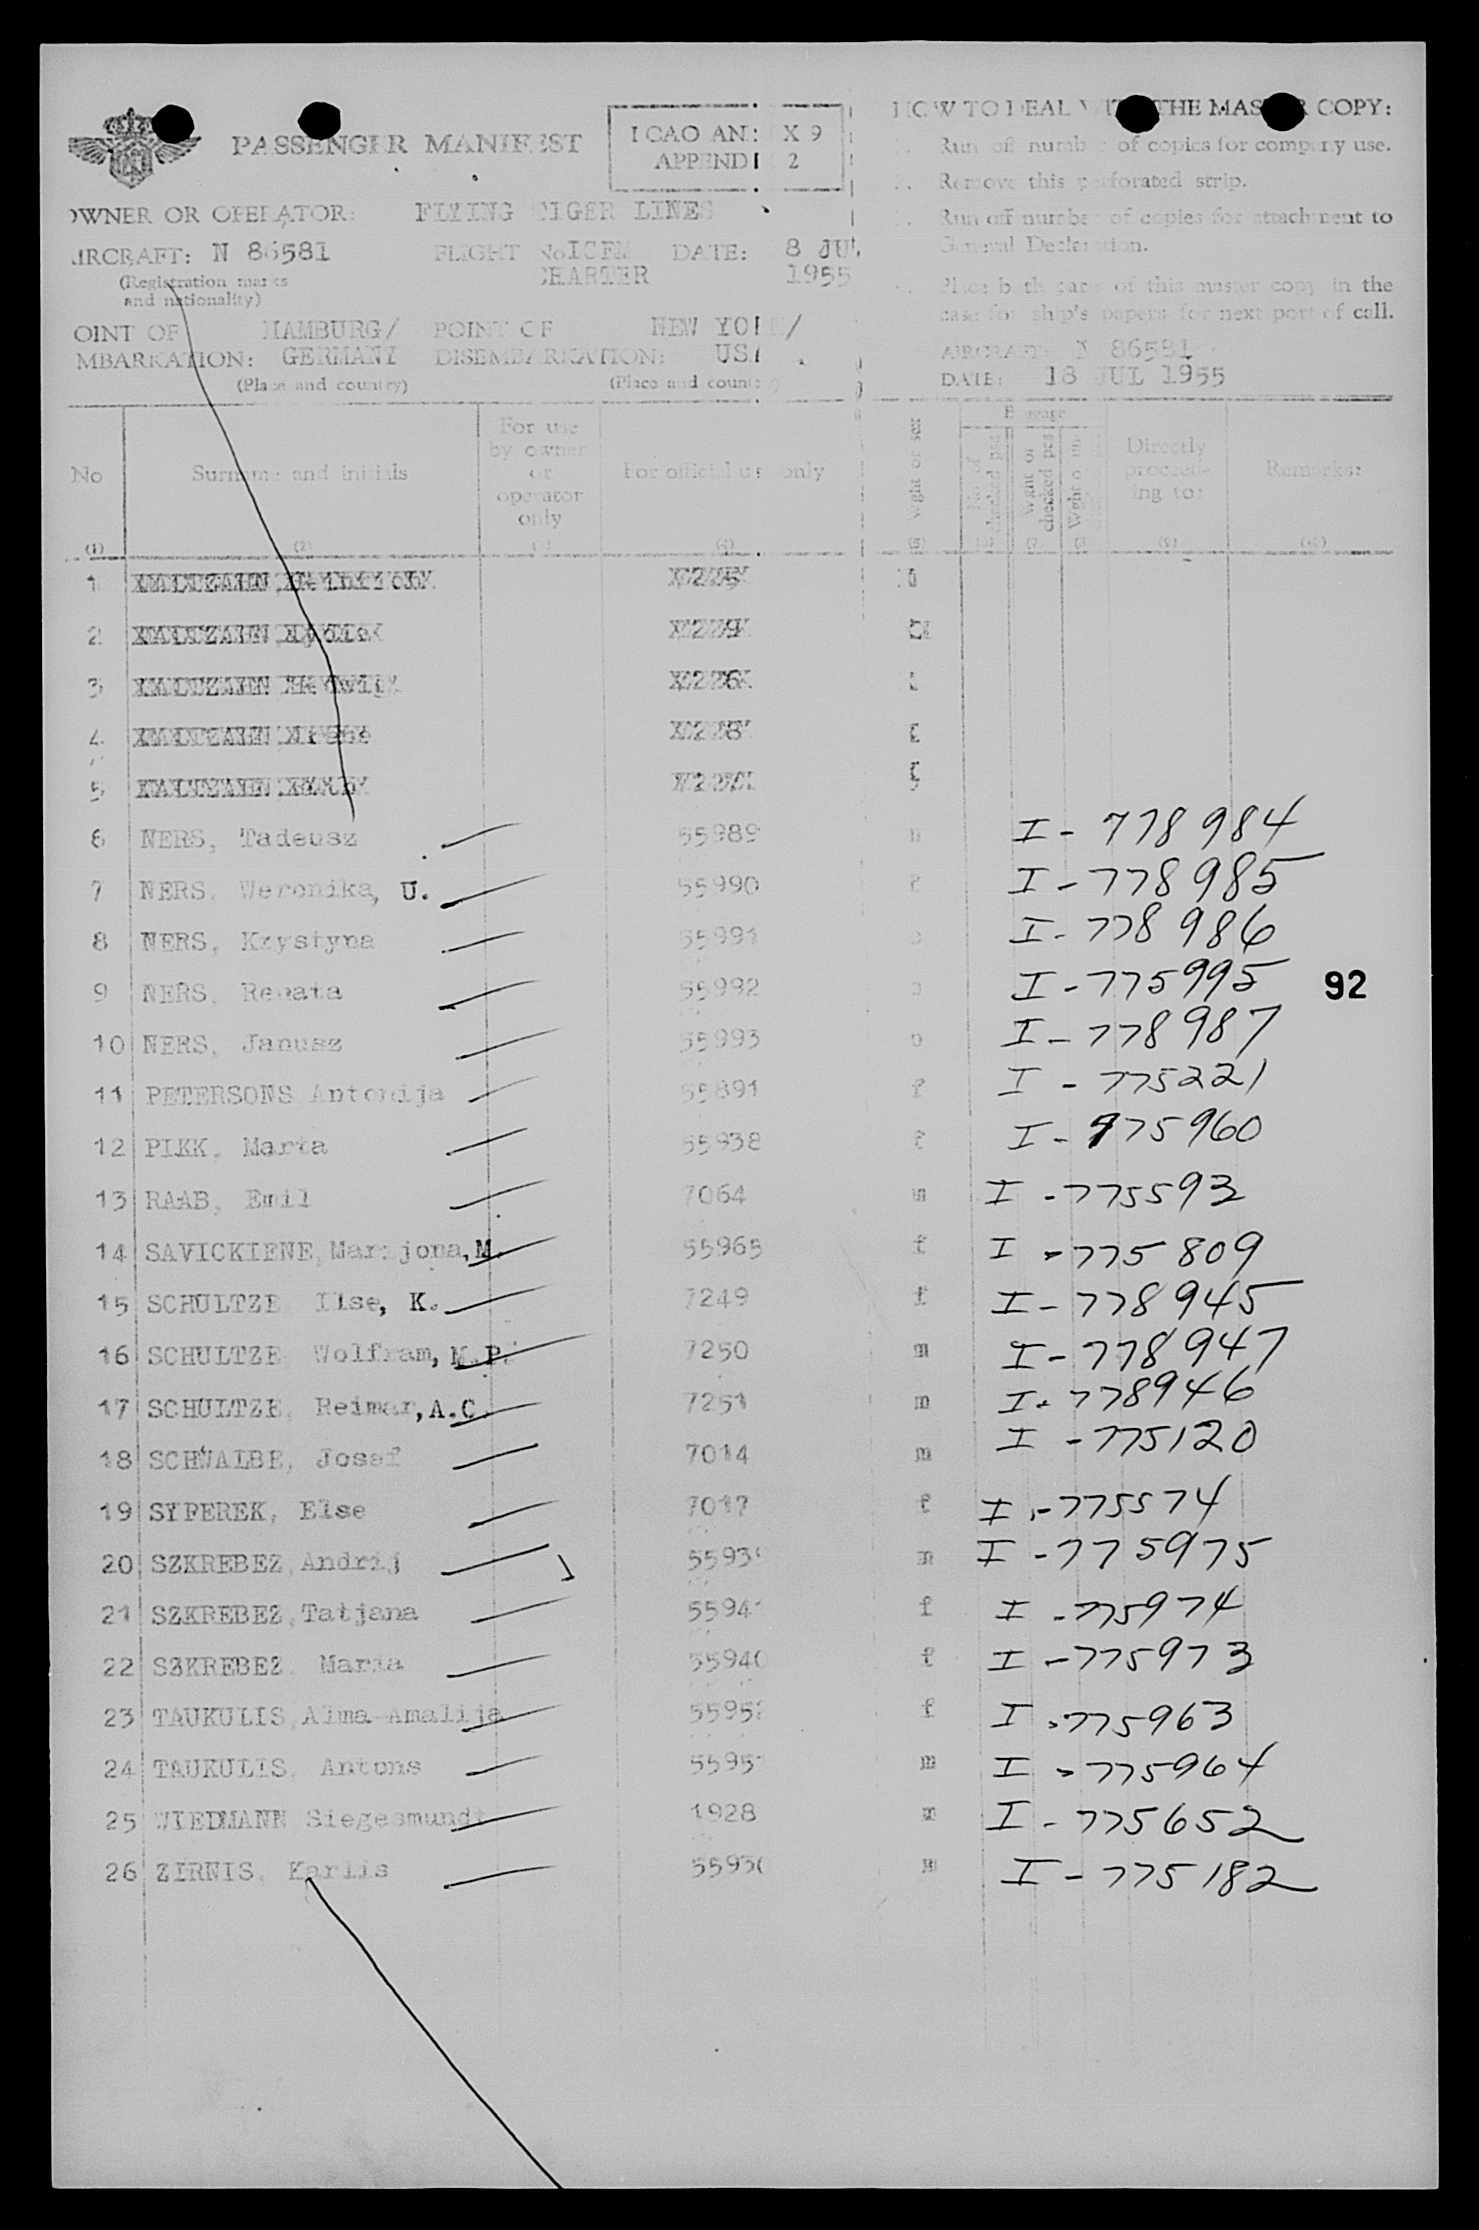 PASSENGER MANIFEST
ICAO ANNEX 9
APPENDIX 2
OWNER OR OPERATOR: FLYING TIGER LINES
AIRCRAFT: N 86581 FLIGHT No ICEM DATE: 8 JUL
(Registration marks CHARTER 1955
and nationality)
POINT OF HAMBURG/ POINT OF NEW YORK/
EMBARKATION: GERMANY DISEMBARKATION: USA
(Place and country) (Place and country)
HOW TO DEAL WITH THE MASTER COPY:
Run off number of copies for company use.
Remove this perforated strip.
Run off number of copies for attachment to
General Declaration.
Place both parts of this master copy in the
case for ship's papers for next port of call.
AIRCRAFT: N 86581
DATE: 18 JUL 1955
No Surname and initials For use by owner or operator only For official use only Directly proceeding to: Remarks:
(1) (2) (4) (5) (7)
1
2
3
4
5
6 NERS, Tadeusz 55989 m I - 778984
7 NERS, Weronika, U. 55990 f I - 778985
8 NERS, Krystyna 55991 I - 778986
9 NERS, Renata 55992 I - 775995
92
10 NERS, Janusz 55993 I - 778987
11 PETERSONS Antonija 55891 f I - 775221
12 PIKK, Marta 55938 f I - 775960
13 RAAB, Emil 7064 m I - 775593
14 SAVICKIENE, Marijona, M. 55965 f I - 775809
15 SCHULTZE Ilse, K. 7249 f I - 778945
16 SCHULTZE Wolfram, M.P. 7250 m I - 778947
17 SCHULTZE, Reimar, A.C. 7251 m I - 778946
18 SCHWALBE, Josef 7014 m I - 775120
19 SYPEREK, Else 7017 f I - 775574
20 SZKREBEZ, Andrij 5593 m I - 775975
21 SZKREBEZ, Tatjana 5594 f I - 775974
22 SZKREBEZ, Maria 55940 f I - 775973
23 TAUKULIS, Alma-Amalija 5595 f I - 775963
24 TAUKULIS, Antons 5595 m I - 775964
25 WIEDMANN Siegesmundt 1928 m I - 775652
26 ZIRNIS, Karlis 5593 m I - 775182